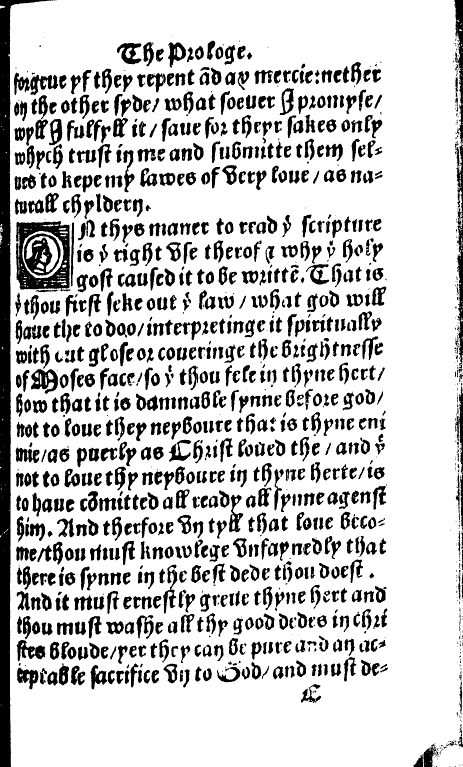 The Prologe.
forgeue yf they repent ād ay mercie: nether
on the other syde / what soeuer I promyse /
wyll I fulfyll it / saue for theyr sakes only
whych trust in me and submitte them sel=
ues to kepe my lawes of very loue / as na=
turall chyldern.
IN thys maner to read yͤ scripture
is yͤ right vse therof & why yͤ holy
gost caused it to be writtē. That is
yͭ thou first seke out yͤ law / what god will
haue the to doo / interpretinge it spiritually
with out glose or coueringe the brightnesse
of Moses face / so yͭ thou fele in thyne hert /
how that it is damnable synne before god /
not to loue they neyboure that is thyne eni
mie / as puerly as Christ loued the / and yͭ
not to loue thy neyboure in thyne herte / is
to haue cōmitted all ready all synne agenst
him. And therfore vn tyll that loue beco=
me / thou must knowlege vnfaynedly that
there is synne in the best dede thou doest.
And it must ernestly greue thyne hert and
thou must washe all thy good dedes in chri
stes bloude / yer they can be pure and an ac=
ceptable sacrifice vn to God / and must de=
C